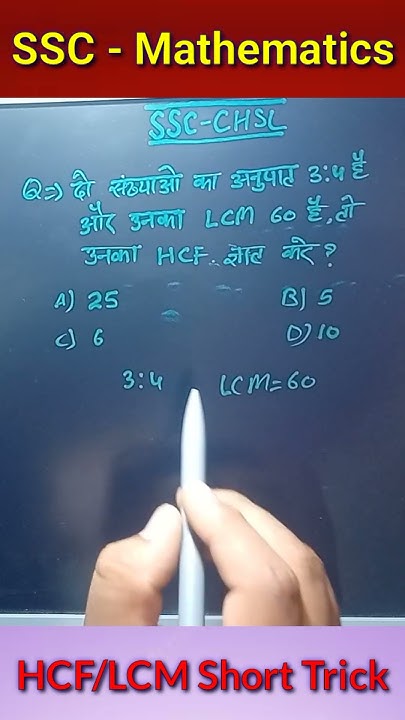 SSC - Mathematics
SSC-CHSL
Q⇒ दो संख्याओ का अनुपात 3:4 है
और उनका LCM 60 है, तो
उनका HCF. ज्ञात करे ?
A) 25 B) 5
C) 6 D) 10
3:4 LCM=60
HCF/LCM Short Trick